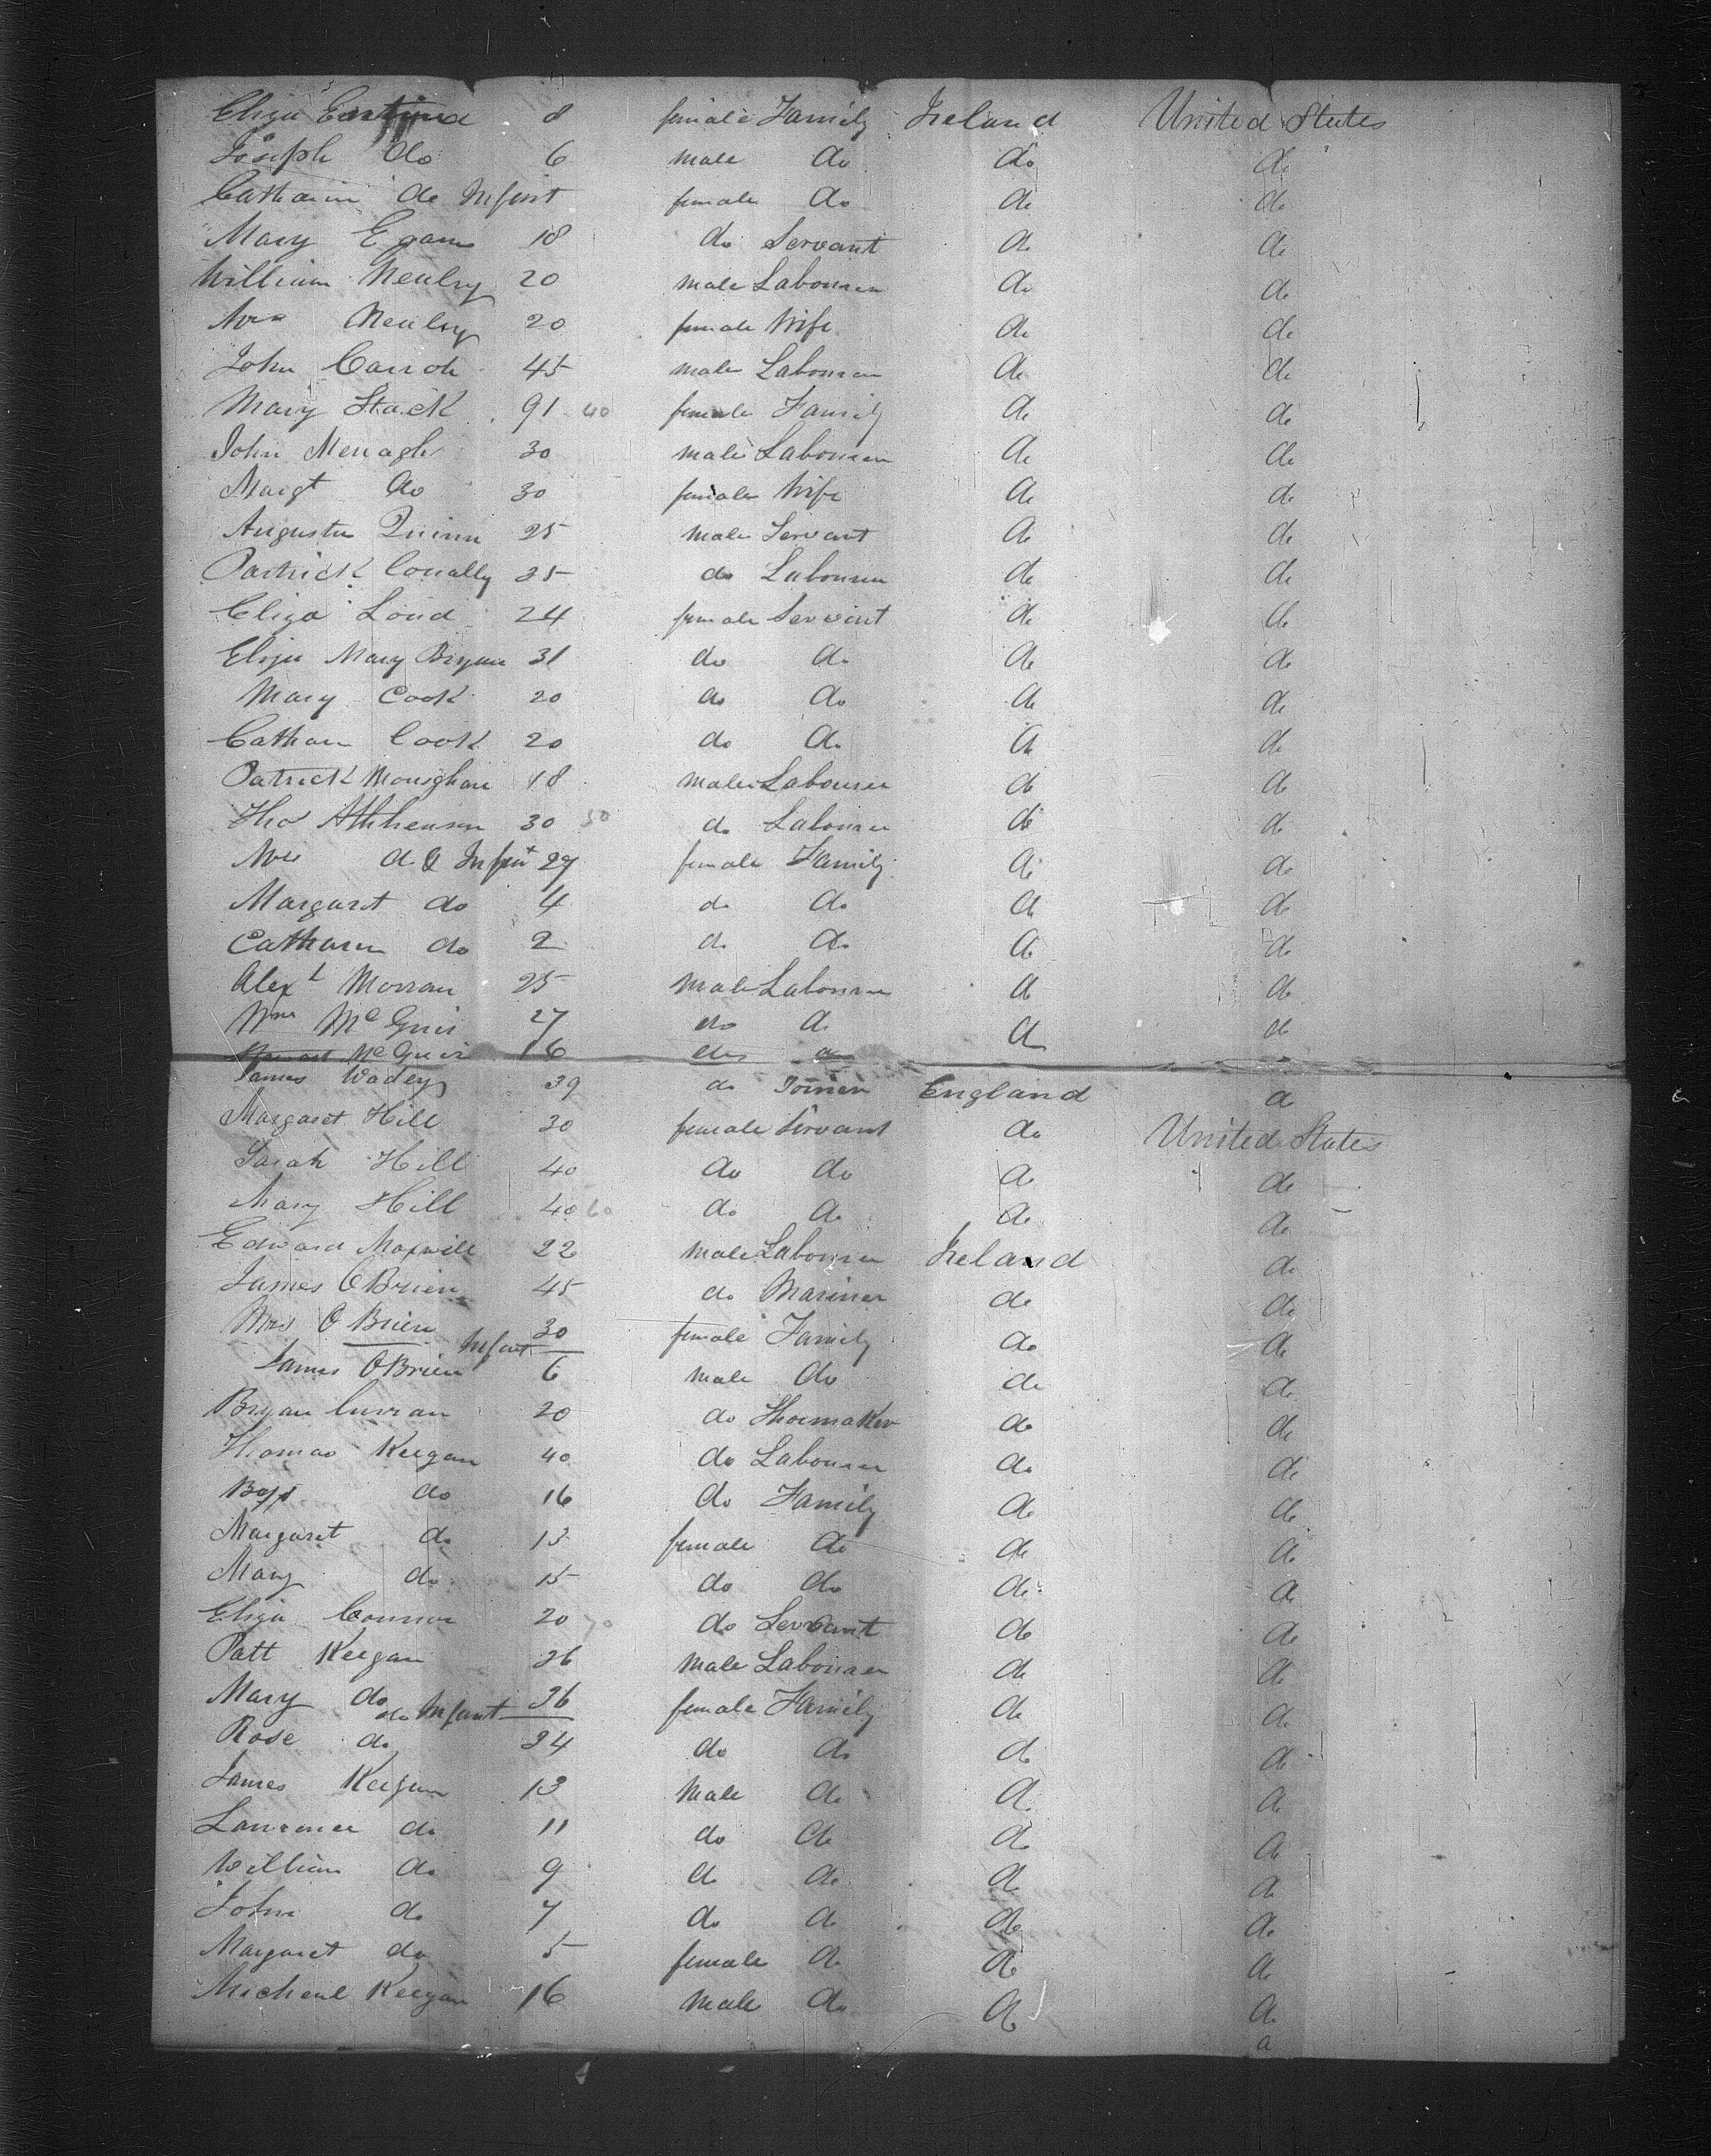 Eliza 8 female Family Ireland United States
Joseph do 6 male do do do
Catharin do Infant female do do do
Mary Egan 18 do Servant do do
William Neulry 20 male Labourer do do
Mrs Neulry 20 female Wife do do
John Carroll 45 male Labourer do do
Mary Stack 91 40 female Family do do
John Menagh 30 male Labourer do do
Margt do 30 female Wife do do
Augustus Quinn 25 male Servant do do
Patrick Conally 35 do Labourer do do
Eliza Loud 24 female Servant do do
Eliza Mary Bryan 31 do do do do
Mary Cook 20 do do do do
Catharn Cook 20 do do do do
Patrick Monighan 18 male Labourer do do
Thos 30 50 do Labourer do do
Mrs do & Infant 27 female Family do do
Margaret do 4 do do do do
Catharn do 2 do do do do
Alext Morran 25 male Labourer do do
Wm McGuir 27 do do do do
McGuir 16 do do
James Wadey 39 do Joiner England do
Margaret Hill 30 female Servant do United States
Sarah Hill 40 do do do do
Mary Hill 40 60 do do do do
Edward Maxwell 22 male Labourer Ireland do
James OBrien 45 do Mariner do do
Mrs O Brien 30 female Family do do
Infant
James OBrien 6 male do do do
Bryan Curran 20 do Shoemaker do do
Thomas Keegan 40 do Labourer do do
do 16 do Family do do
Margaret do 13 female do do do
Mary do 15 do do do do
Eliza Connor 20 70 do Servant do do
Patt Keegan 26 male Labourer do do
Mary do 36 female Family do do
do Infant
Rose do 24 do do do do
James Keegan 13 Male do do do
Lawrence do 11 do do do do
William do 9 do do do do
John do 7 do do do do
Margaret do 5 female do do do
Micheal Keegan 16 male do do do
do